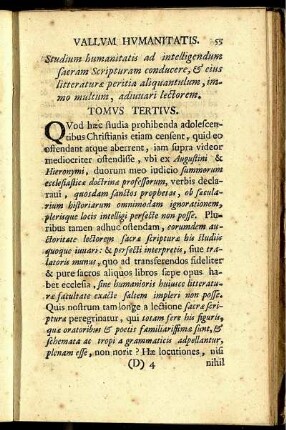 VALLVM HVMANITATIS. 55
Studium humanitatis ad intelligendum
sacram Scripturam conducere, & eius
litteraturæ peritia aliquantulum, im-
mo multum, adiuuari lectorem.
TOMVS TERTIVS.
QVod hæc studia prohibenda adolescen-
tibus Christianis etiam censent, quid eo
ostendant atque aberrent, iam supra videor
mediocriter ostendisse, vbi ex Augustini &
Hieronymi, duorum meo iudicio summorum
ecclesiasticæ doctrinæ professorum, verbis decla-
raui, quosdam sanctos prophetas, ob sæcula-
rium historiarum omnimodam ignorationem,
plerisque locis intelligi perfecte non posse. Plu-
ribus tamen adhuc ostendam, eorumdem au-
ctoritate lectorem sacræ scripturæ his studiis
quoque iuuari: & perfecti interpretis, siue tra-
latoris munus, quo ad transferendos fideliter
& pure sacros aliquos libros sæpe opus ha-
bet ecclesia, sine humanioris huiusce litteratu-
ræ facultate exacte saltem impleri non posse.
Quis nostrum tam longe a lectione sacræ scri-
pturæ peregrinatur, qui totam fere his figuris,
quæ oratoribus & poetis familiarissimæ sunt, &
schemata ac tropi a grammaticis adpellantur,
plenam esse, non norit? Hæ locutiones, nisi
(D) 4 nihil